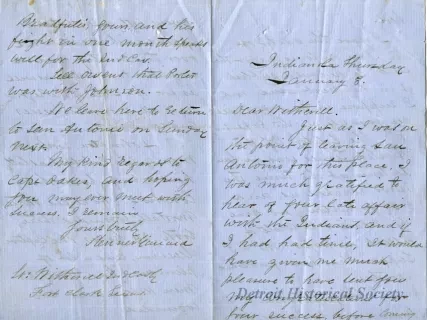 Indianola Thursday
January 8.
Dear Witherell.
Just as I was on
the point of leaving San
Antonio for this place, I
was much gratified to
hear of your late affair
with the Indians, and if
I had had time, it would
have given me much
pleasure to have sent you
my congratulations for
your success, before leaving
Bradfute's gown and his
fight in one month speaks
well for the 2nd Cav.
was with Johnson.
We leave here to return
to San Antonio on Sunday
next.
My kind regards to
Capt Oakes, and hoping
you may ever meet with
success, I remain
Yours truly
Lt. Witherell 2nd Cavly
Fort Clark Texas
Detroit Historical Society